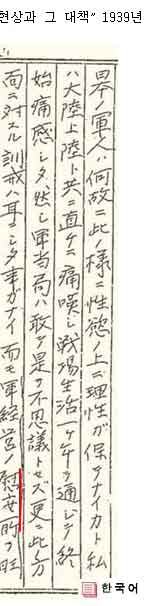 현상과 그 대책” 1939년
日本ノ軍人ハ何故ニ此ノ様ニ性慾ノ上ニ理性ガ保テナイカト私
ハ大陸上陸ト共ニ直チニ痛嘆シ戦場生活一ケ年ヲ通ジテ終
始痛感シタ然シ軍当局ハ敢テ是ヲ不思議トセズ更ニ此ノ方
面ニ対スル訓戒ハ耳ニシタ事ガナイ而モ軍経営ノ慰安所ヲ旺
한국어